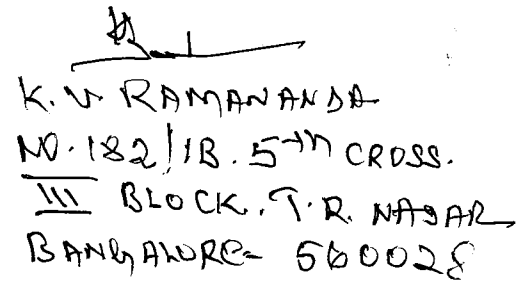 K. V RAMANANDA
NO. 182/1B. 5th CROSS.
III BLOCK. T. R. NAGAR
BANGALORE- 560028